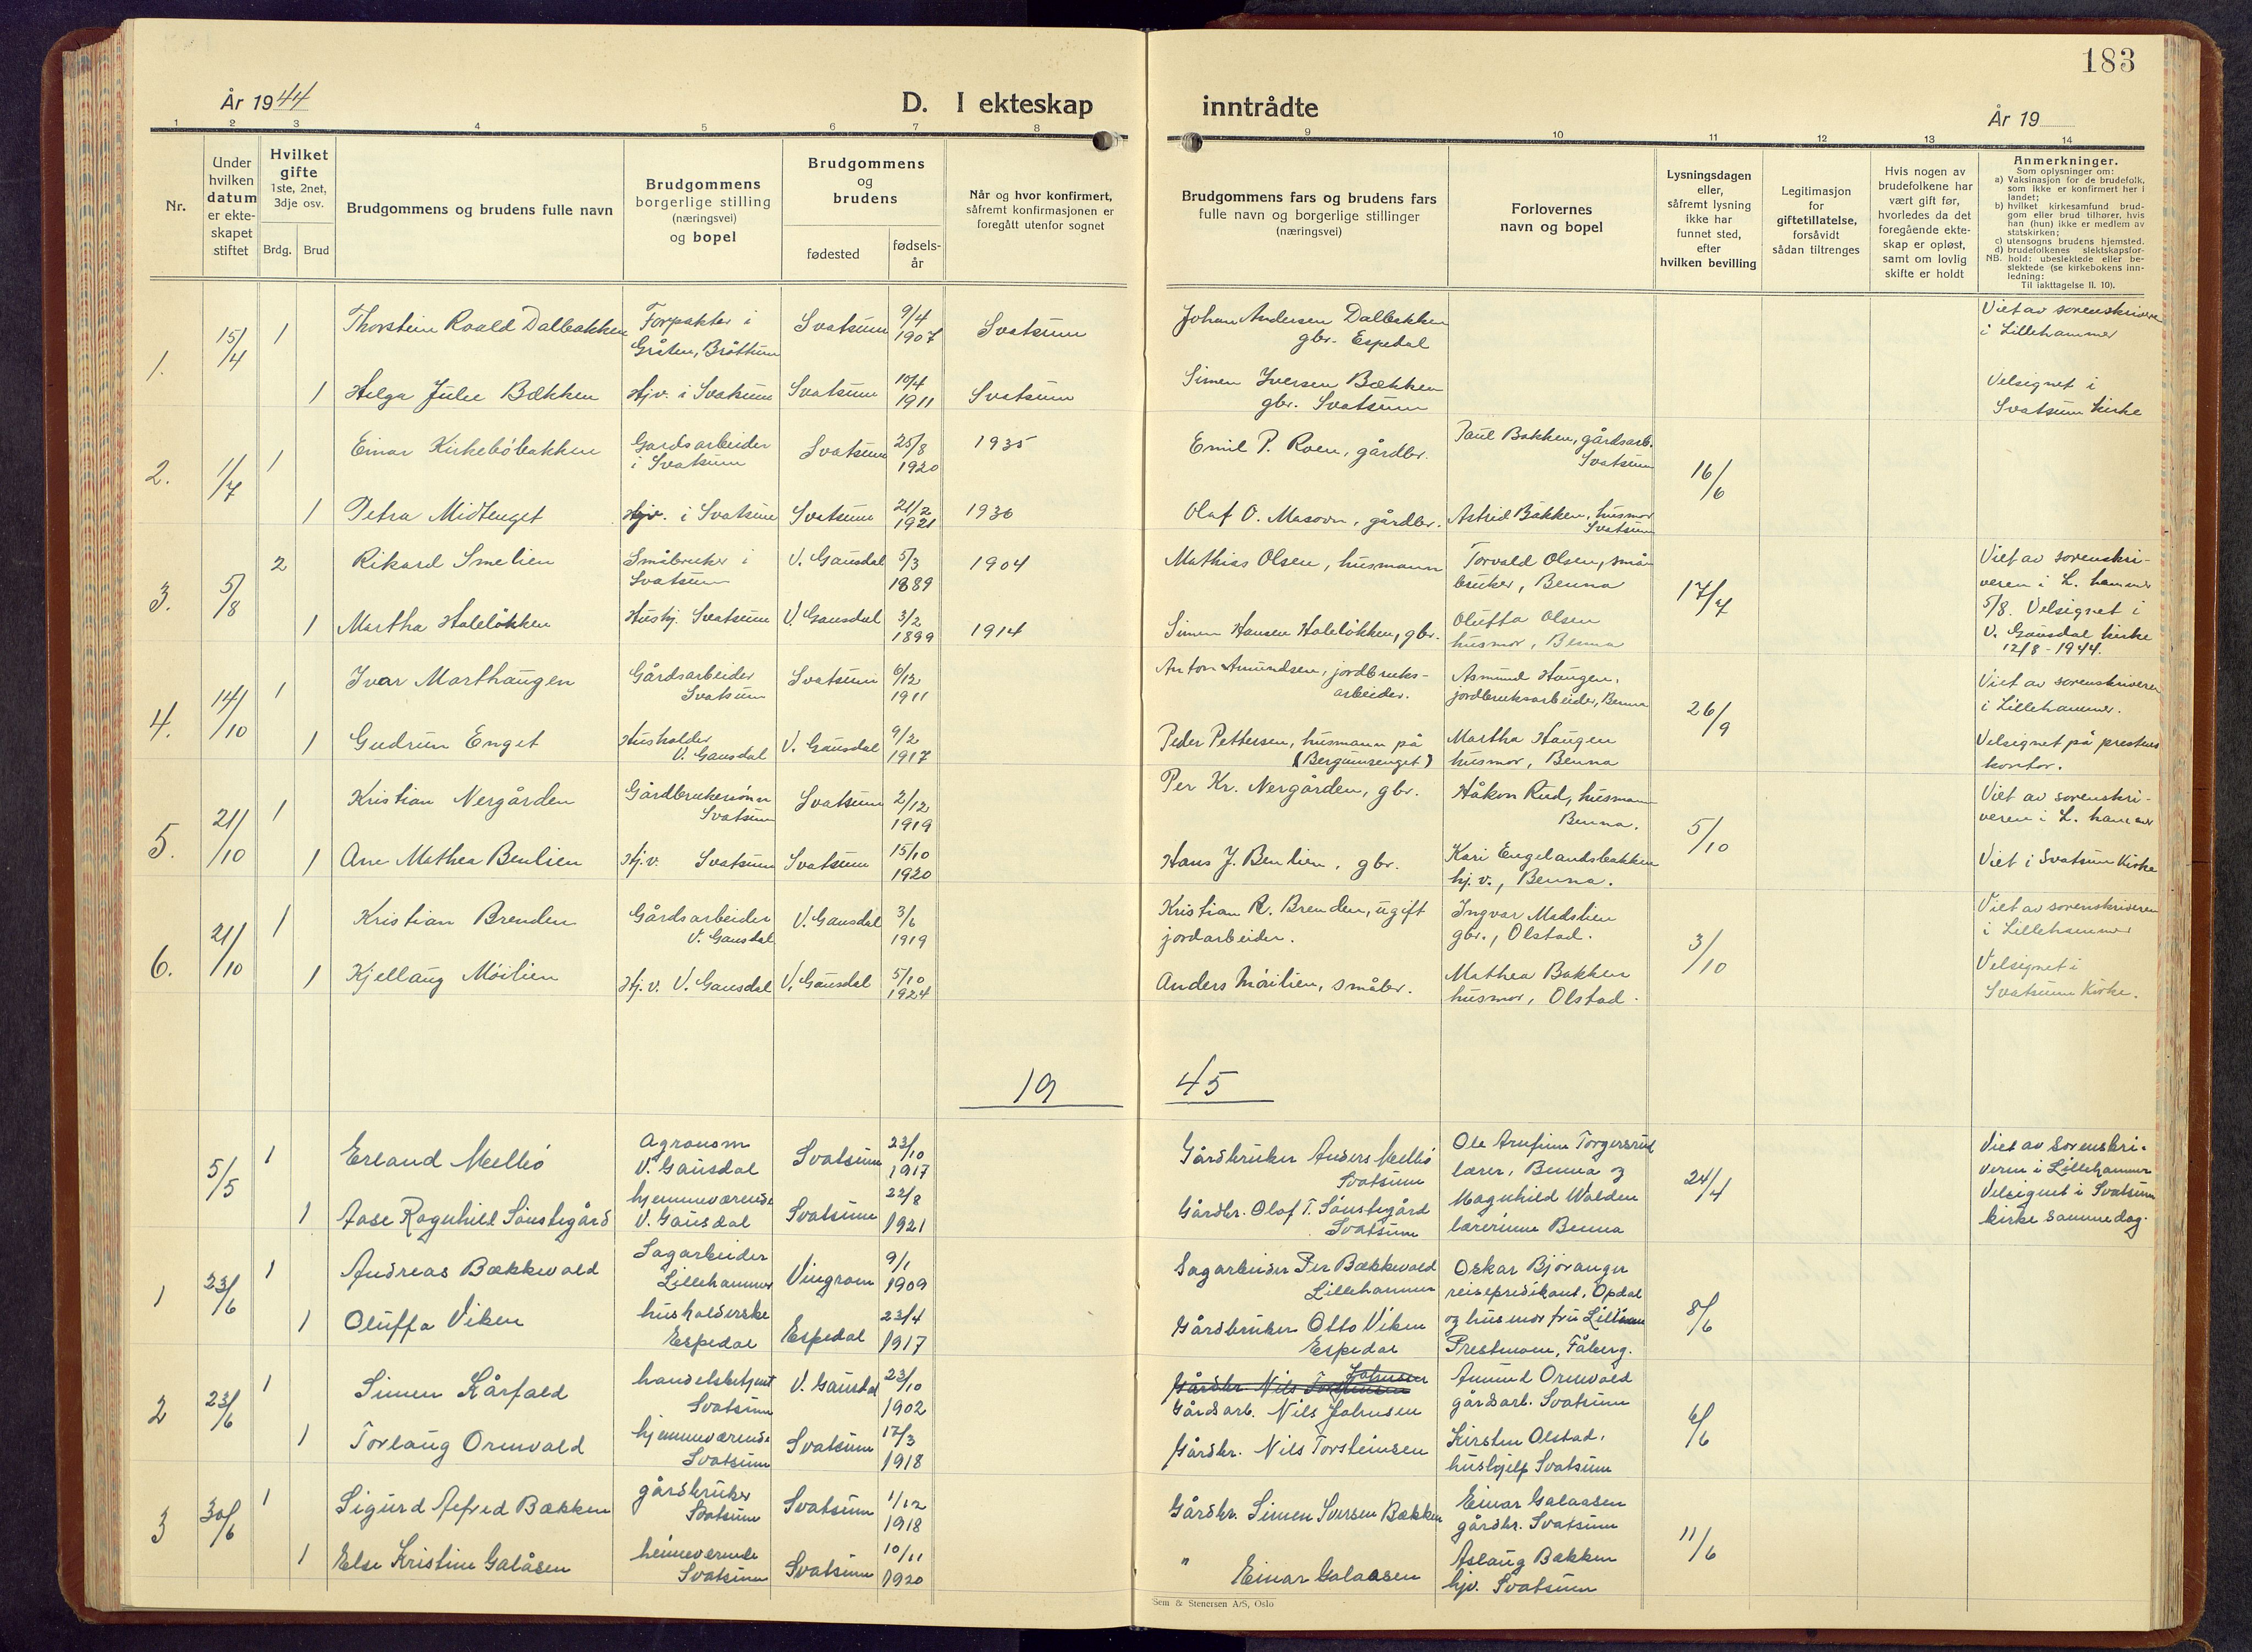 183
År 1944
D. I ekteskap inntrådte
År 19
1 2 3 4 5 6 7 8 9 10 11 12 13 14
Nr.
Under
hvilken
datum
er ekte-
skapet
stiftet
Hvilket
gifte
1ste, 2net,
3dje osv.
Brdg. Brud
Brudgommens og brudens fulle navn
Brudgommens
borgerlige stilling
(næringsvei)
og bopel
Brudgommens
og
brudens
fødested
fødsels-
år
Når og hvor konfirmert,
såfremt konfirmasjonen er
foregått utenfor sognet
Brudgommens fars og brudens fars
fulle navn og borgerlige stillinger
(næringsvei)
Forlovernes
navn og bopel
Lysningsdagen
eller,
såfremt lysning
ikke har
funnet sted,
efter
hvilken bevilling
Legitimasjon
for
giftetillatelse,
forsåvidt
sådan tiltrenges
Hvis nogen av
brudefolkene har
vært gift før,
hvorledes da det
foregående ekte-
skap er opløst,
samt om lovlig
skifte er holdt
Anmerkninger.
Som oplysninger om:
a) Vaksinasjon for de brudefolk,
som ikke er konfirmert her i
landet;
b) hvilket kirkesamfund brud-
gom eller brud tilhører, hvis
han (hun) ikke er medlem av
statskirken;
c) utensogns brudens hjemsted.
d) brudefolkenes slektskapsfor-
NB. hold: ubeslektede eller be-
slektede (se kirkebokens inn-
ledning:
Til iakttagelse II. 10).
1. 15/4 1 Thorstein Roald Dalbakken Forpakter i Gråsten, Brøttum Svatsum 9/4 1907 Svatsum Johan Andersen Dalbakken gbr. Espedal Viet av sorenskriveren i Lillehammer
1 Helga Julie Bækken Hjv. i Svatsum Svatsum 10/4 1911 Svatsum Simen Iversen Bækken gbr. Svatsum Velsignet i Svatsum kirke
2. 1/7 1 Einar Kirkebøbakken Gardsarbeider i Svatsum Svatsum 25/8 1920 1935 Emil P. Roen, gårdbr. Paul Bakken, gårdsarb. Svatsum 16/6
1 Petra Midtenget Hjv. i Svatsum Svatsum 21/2 1921 1936 Olaf O. Masovn, gårdbr. Astrid Bakken, husmor Svatsum
3. 5/8 2 Rikard Smelien Småbruker i Svatsum V. Gausdal 5/3 1889 1904 Mathias Olsen, husmann Torvald Olsen, små- bruker, Benna 17/7 Viet av sorenskri- veren i L. hammer
1 Martha Haleløkken Hushj. Svatsum V. Gausdal 3/2 1899 1914 Simen Hansen Haleløkken, gbr. Oluffa Olsen husmor, Benna 5/8. Velsignet i V. Gausdal kirke 12/8-1944.
4. 14/10 1 Ivar Marthaugen Gårdsarbeider Svatsum Svatsum 6/12 1911 Anton Amundsen, jordbruks- arbeider. Asmund Haugen, jordbruksarbeider, Benna 26/9 Viet av sorenskriveren i Lillehammer.
1 Gudrun Enget Husholder V. Gausdal V. Gausdal 9/2 1917 Peder Pettersen, husmann på (Bergumsenget) Martha Haugen husmor, Benna Velsignet på prestens kontor.
5. 21/10 1 Kristian Nergården Gårdbrukersønn Svatsum Svatsum 2/12 1919 Per Kr. Nergården, gbr. Håkon Rud, husmann Benna. 5/10 Viet av sorenskri- veren i L. hammer
1 Ane Mathea Benlien Hj.v. Svatsum Svatsum 15/10 1920 Hans J. Benlien, gbr. Kari Engelandsbakken hj.v., Benna. Viet i Svatsum Kirke
6. 21/10 1 Kristian Brenden Gårdsarbeider V. Gausdal V. Gausdal 3/6 1919 Kristian R. Brenden, ugift jordarbeider. Ingvar Madslien gbr., Olstad. 3/10 Viet av sorenskriveren i Lillehammer
1 Kjellaug Möilien Hj.v. V. Gausdal V. Gausdal 5/10 1924 Anders Möilien, småbr. Mathea Bakken husmor, Olstad. Velsignet i Svatsum Kirke.
19 45
5/5 1 Erland Mellbö Agronom V. Gausdal Svatsum 23/10 1917 Gårdbruker Anders Mellbö Svatsum Ole Arnfinn Torgersrud lærer, Benna og 24/4 Viet av sorenskri- veren i Lillehammer
1 Aase Ragnhild Sönstegård hjemmeværende V. Gausdal Svatsum 22/8 1921 Gårdbr. Olaf T. Sönstegård Svatsum Magnhild Walden lærerinne Benna Velsignet i Svatsum kirke samme dag.
1 23/6 1 Andreas Bækkevold Sagarbeider Lillehammer Vingrom 9/1 1909 Sagarbeider Per Bækkevold Lillehammer Oskar Björanger reisepredikant, Opdal 8/6
1 Oluffa Viken husholderske Espedal Espedal 23/4 1917 Gårdbruker Otto Viken Espedal og husmor fru Lillian Prestmoen, Fåberg.
2 23/6 1 Simen Kårfald handelsbetjent Svatsum V. Gausdal 23/10 1902 Gårdbr. Nils Johnsen Gårdsarb. Nils Johnsen Amund Ormvold gårdsarb. Svatsum 6/6
1 Torlaug Ormvold hjemmeværende Svatsum Svatsum 17/3 1918 Gårdbr. Nils Torsteinsen Kirsten Olstad, hushjelp Svatsum
3 30/6 1 Sigurd Alfred Bækken gårdbruker Svatsum Svatsum 1/12 1918 Gårdbr. Simen Iversen Bækken Einar Galaasen gårdbr. Svatsum 11/6
1 Else Kristine Galåsen heimeværende Svatsum Svatsum 10/11 1920 " Einar Galaasen Aslaug Bækken hjv. Svatsum
Sem & Stenersen A/S, Oslo